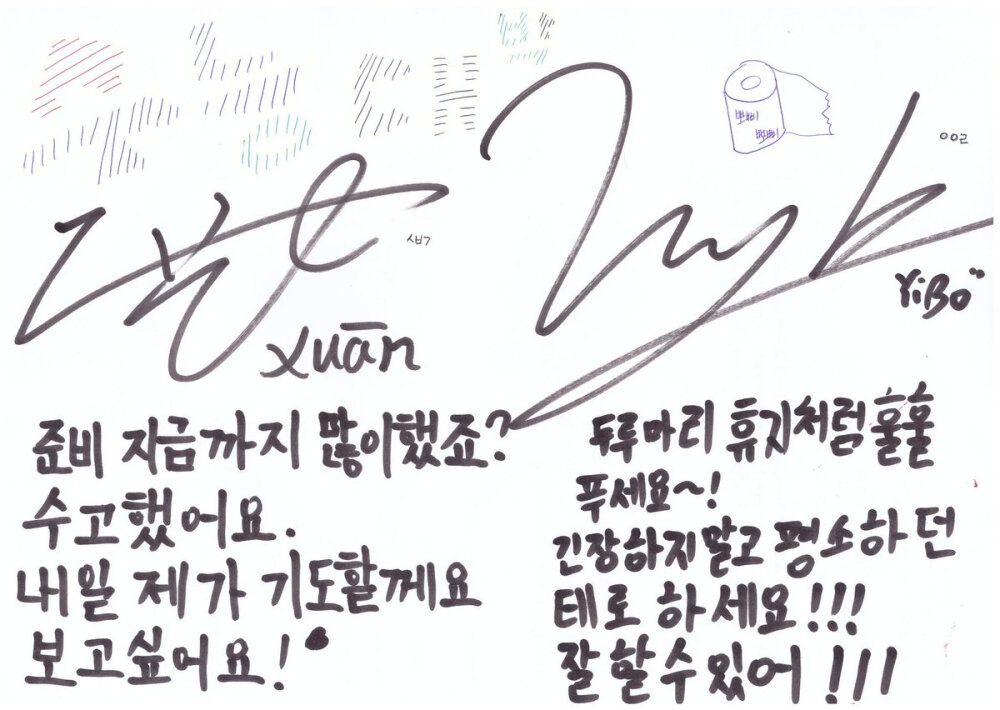 뽀삐
뽀삐
xuān
YiBo
준비 지금까지 많이했죠?
수고했어요.
내일 제가 기도할께요
보고싶어요!
두루마리 휴지처럼 훌훌
푸세요~!
긴장하지말고 평소하던
테로 하세요!!!
잘할수있어!!!